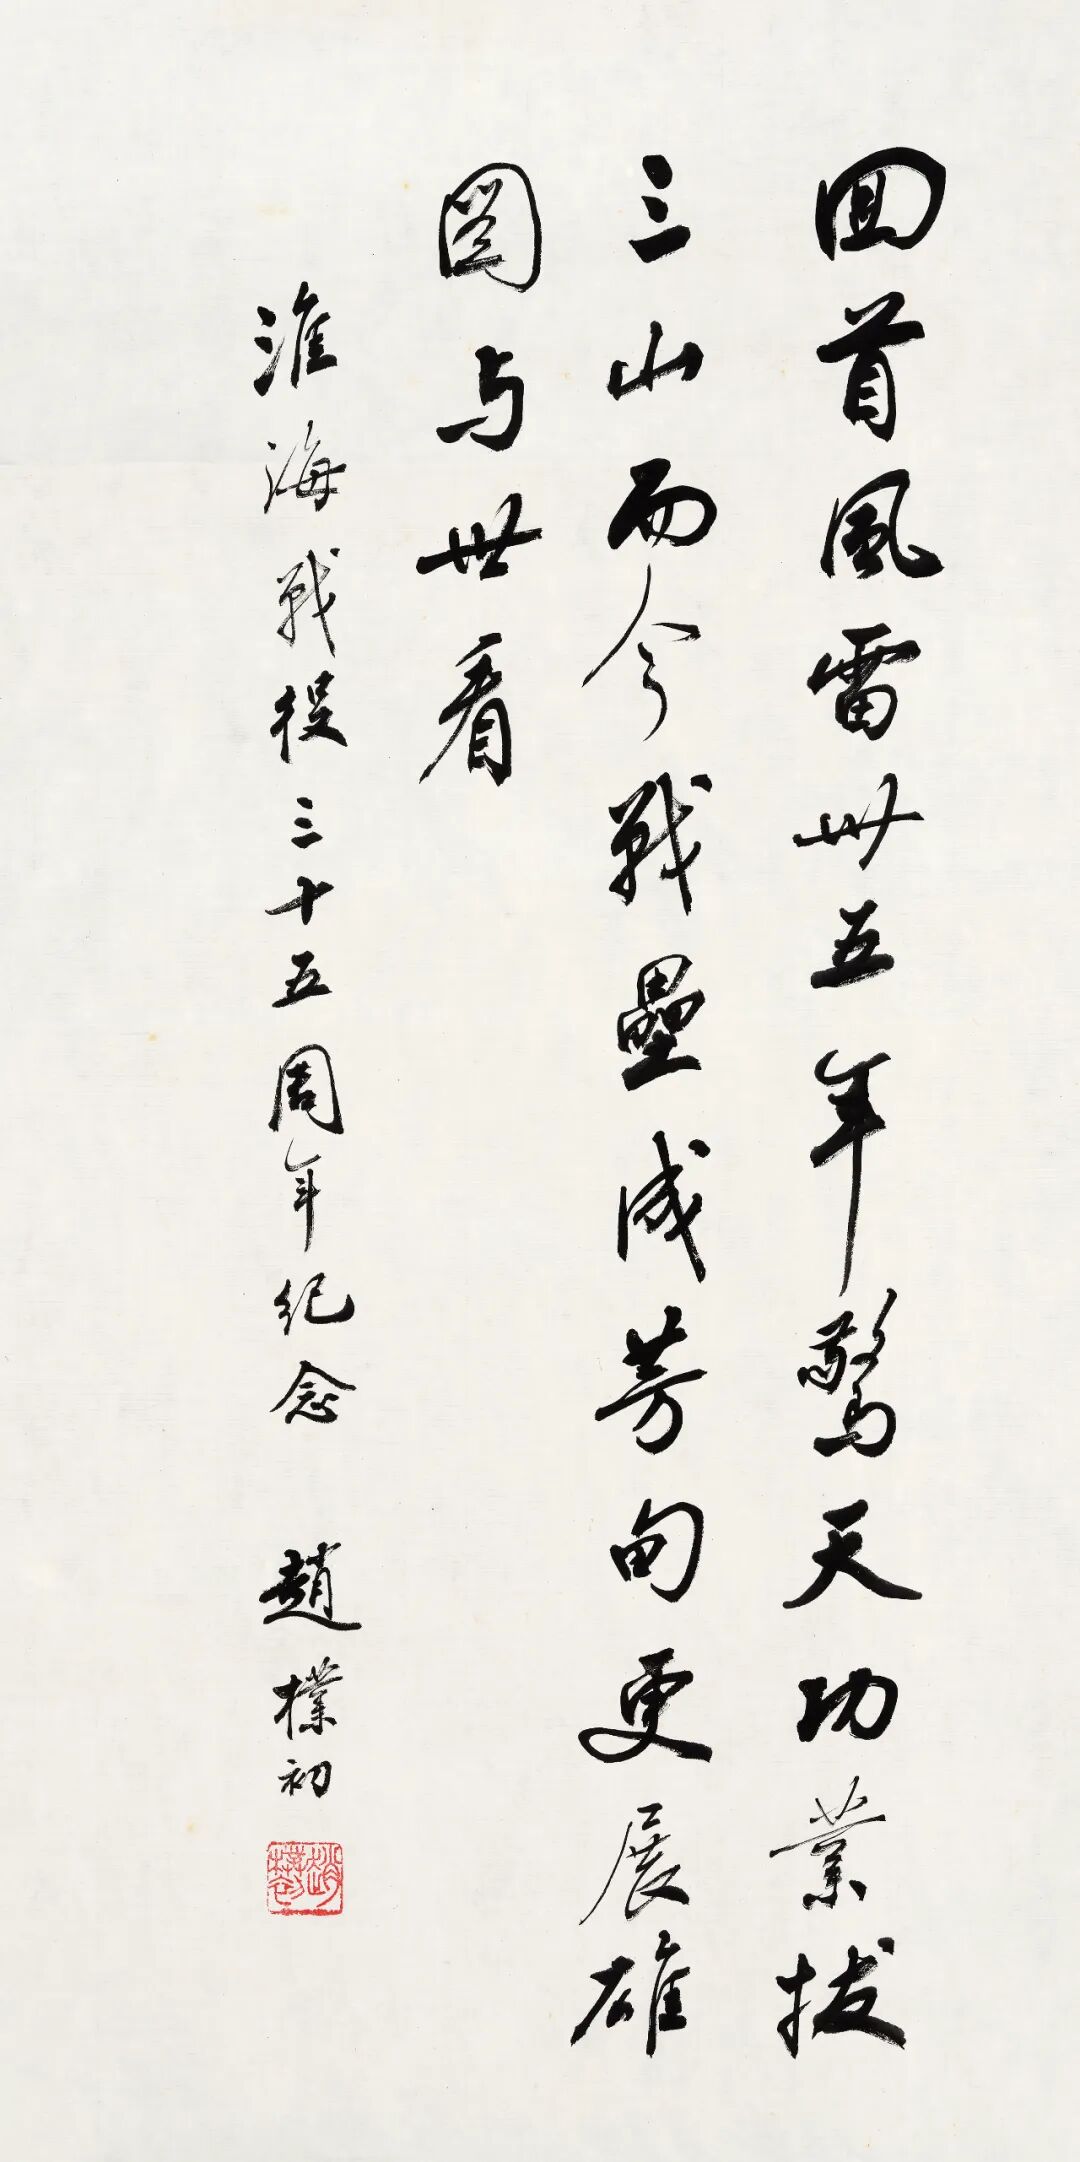 回首風雷卅五年驚天功業拔
三山而今戰壘成芳甸更展雄
圖与世看
淮海戰役三十五周年纪念 趙樸初
趙樸初